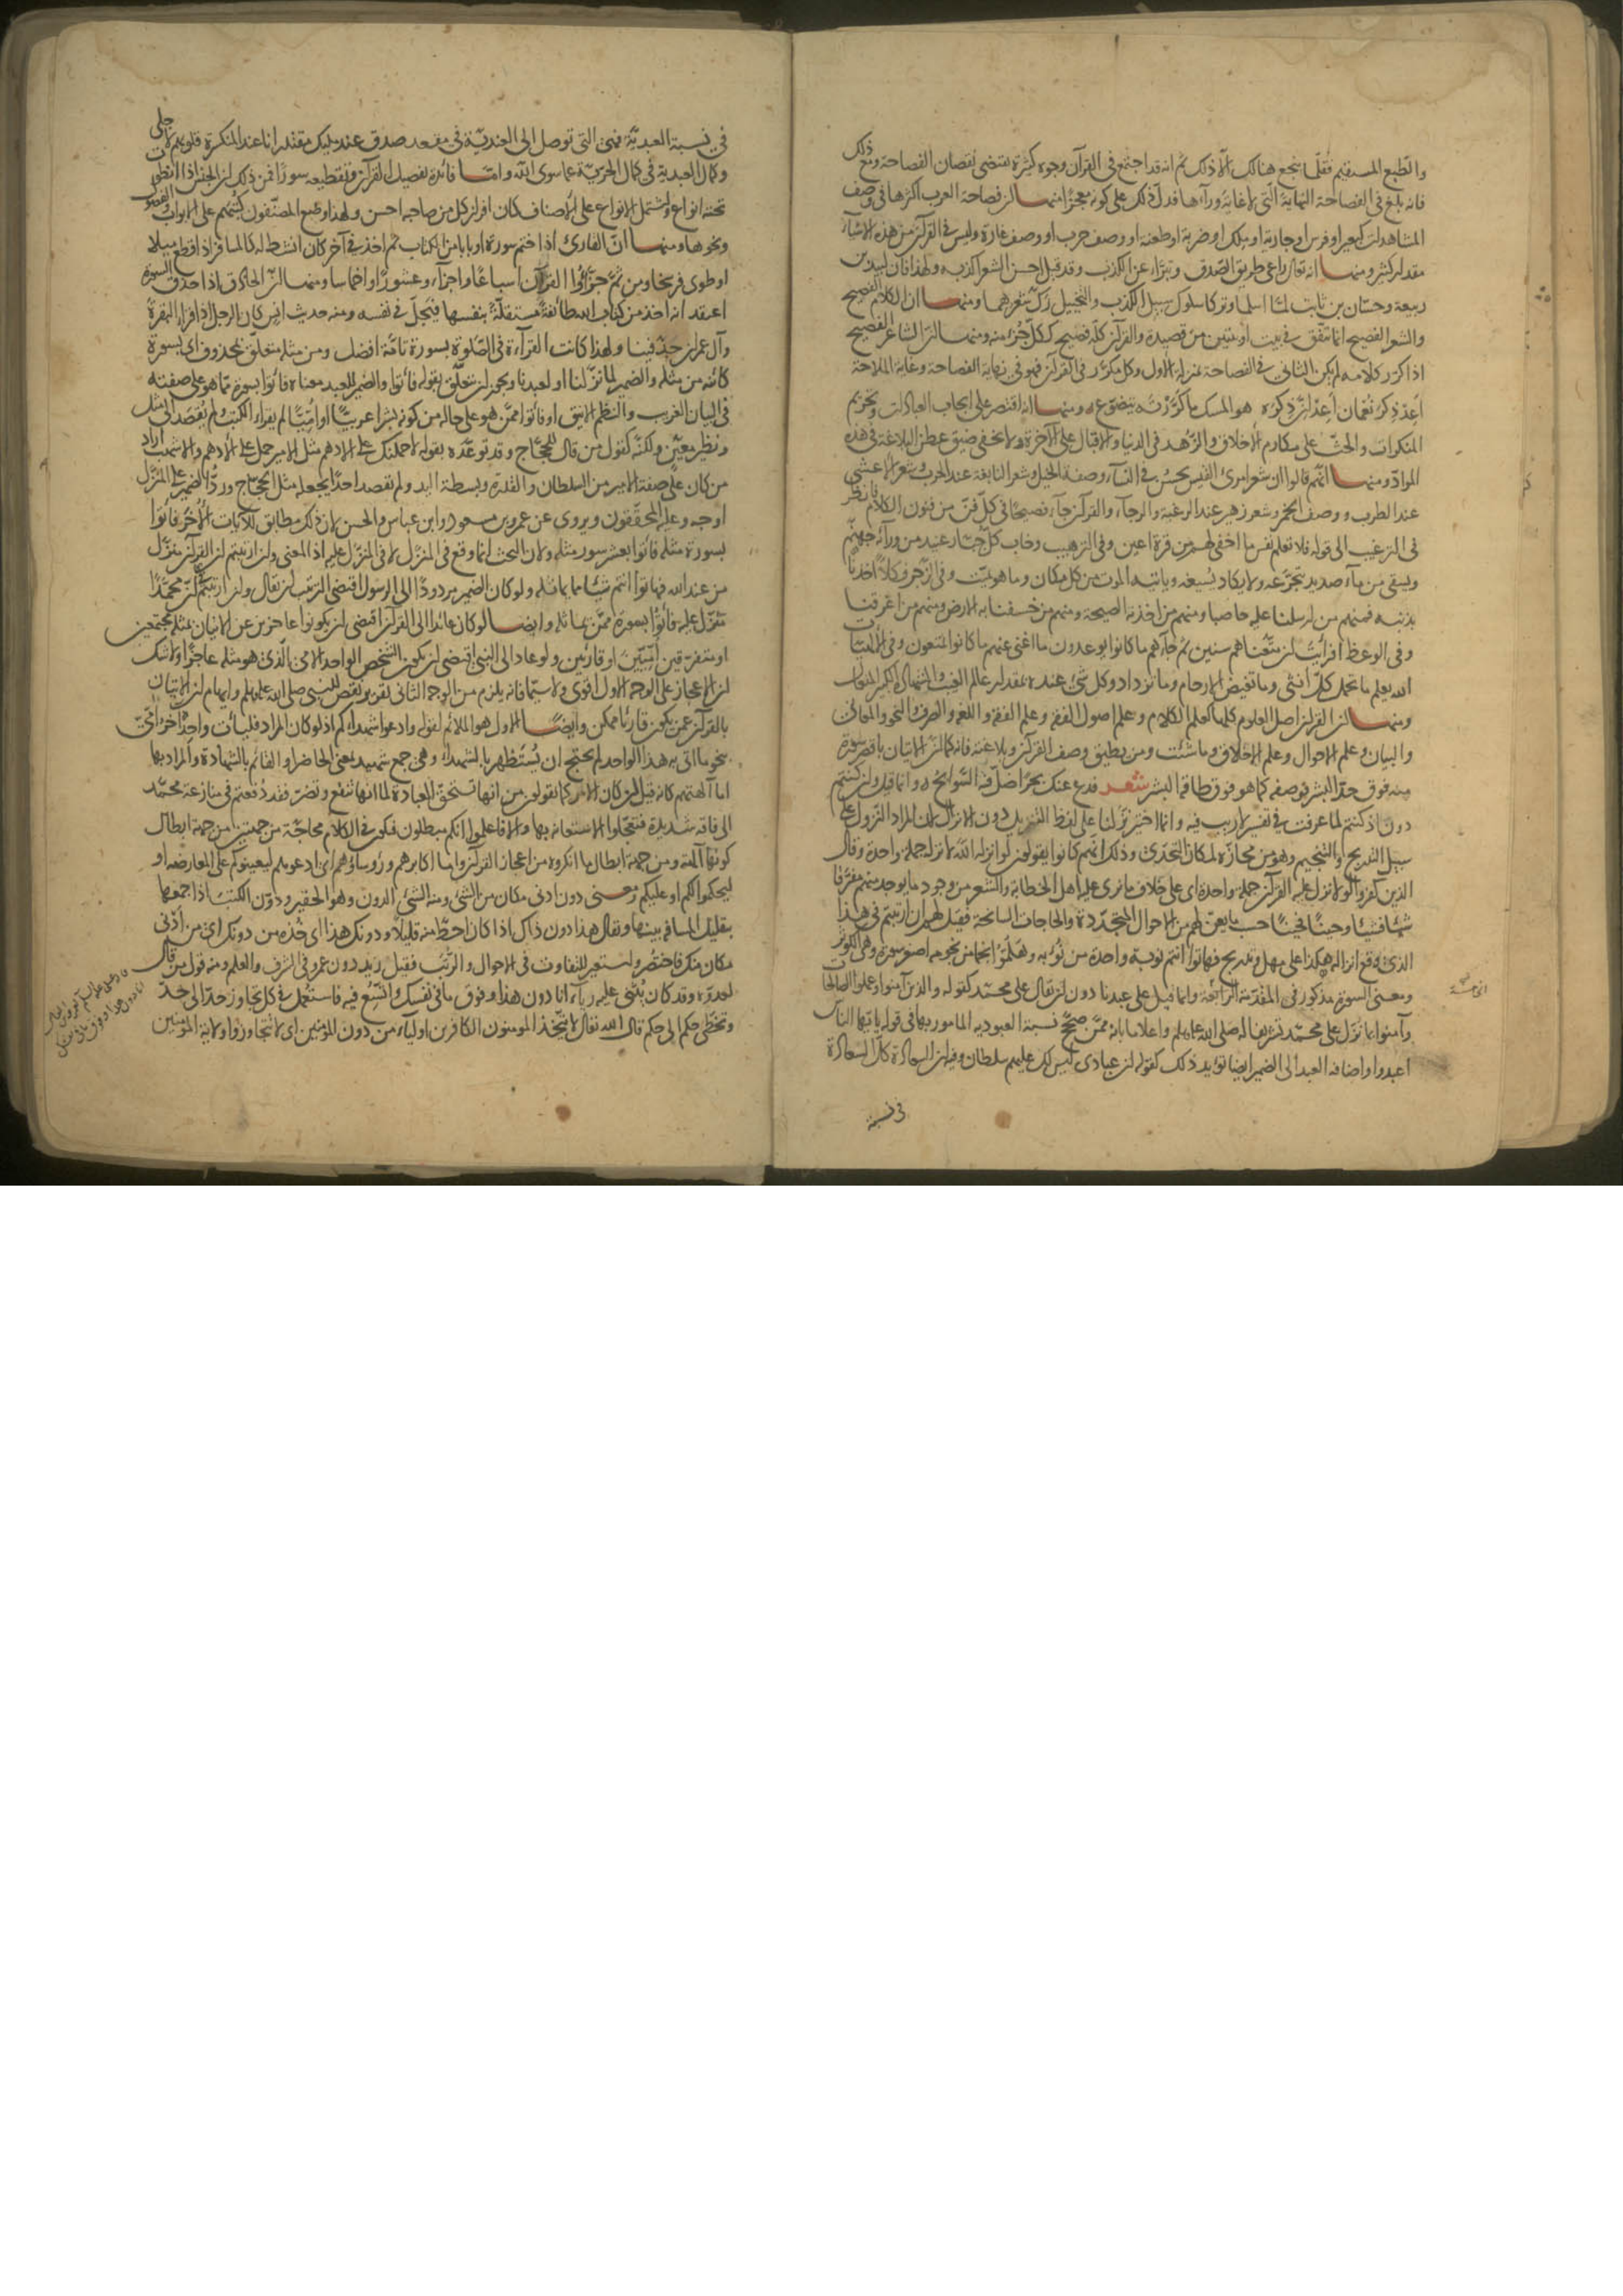 والطبع المستقيم فقلما ينجع هنالك الا ذلك ثم انه قد اجتمع في القرآن وجوه كثيرة تقتضي نقصان الفصاحة ومع ذلك
فانه بلغ في الفصاحة النهاية التي لا غاية وراءها فدل ذلك على كونه معجزا منها ان فصاحة العرب اكثرها في وصف
المشاهدات كبعير او فرس او جارية او ملك او ضربة او طعنة او وصف حرب او وصف غارة وليس في القرآن من هذه الاشياء
مقدار كثير ومنها انه تعالى راعى طريق الصدق وتبرأ عن الكذب وقد قيل احسن الشعر اكذبه ولهذا فان لبيد بن
ربيعة وحسان بن ثابت لما اسلما وتركا سلوك سبيل الكذب والتخييل رك شعرهما ومنها ان الكلام الفصيح
والشعر الفصيح انما يتفق في بيت او بيتين من قصيدة والقرآن كله فصيح ككل جزء منه ومنها ان الشاعر الفصيح
اذا كرر كلامه لم يكن الثاني في الفصاحة بمنزلة الاول وكل مكرر في القرآن فهو في نهاية الفصاحة وغاية الملاحة
اعد ذكر نعمان اعد ان ذكره هو المسك ما كررته يتضوع ومنها انه اقتصر على ايجاب العبادات وتحريم
المنكرات والحث على مكارم الاخلاق والزهد في الدنيا والاقبال على الآخرة ولا يخفى ضيق عطن البلاغة في هذه
المواد ومنها انهم قالوا ان شعر امرئ القيس يحسن في النساء وصفة الخيل وشعر النابغة عند الحرب وشعر الاعشى
عند الطرب ووصف الخمر وشعر زهير عند الرغبة والرجاء والقرآن جاء فصيحا في كل فن من فنون الكلام فانظر
في الترغيب الى قوله فلا تعلم نفس ما اخفي لهم من قرة اعين وفي الترهيب وخاب كل جبار عنيد من ورائه جهنم
ويسقى من ماء صديد يتجرعه ولا يكاد يسيغه ويأتيه الموت من كل مكان وما هو بميت وفي الزجر فكلا اخذنا
بذنبه فمنهم من ارسلنا عليه حاصبا ومنهم من اخذته الصيحة ومنهم من خسفنا به الارض ومنهم من اغرقنا
وفي الوعظ افرأيت ان متعناهم سنين ثم جاءهم ما كانوا يوعدون ما اغنى عنهم ما كانوا يمتعون وفي الالهيات
الله يعلم ما تحمل كل انثى وما تغيض الارحام وما تزداد وكل شيء عنده بمقدار عالم الغيب والشهادة الكبير المتعال
ومنها ان القرآن اصل العلوم كلها كعلم الكلام وعلم اصول الفقه وعلم الفقه واللغة والصرف والنحو والمعاني
والبيان وعلم الاحوال وعلم الاخلاق وما شئت ومن يطيق وصف القرآن وبلاغته فانه كما ان الاتيان باقصر سورة
منه فوق حد البشر فوصفه كما هو فوق طاقة البشر شعر فدع عنك بحرا ضل فيه السوابح وانما قيل وان كنتم
دون اذ كنتم لما عرفت في تفسير لا ريب فيه وانما اختير نزلنا على لفظ التنزيل دون الانزال لان المراد النزول على
سبيل التدريج والتنجيم وهو من مجازه لمكان التحدي وذلك انهم كانوا يقولون لو انزله الله لانزله جملة واحدة وقال
الذين كفروا لولا نزل عليه القرآن جملة واحدة اي على خلاف ما نرى عليه اهل الخطابة والشعر من وجود ما يوجد منهم مفرقا
شيئا فشيئا وحينا فحينا حسب ما يعن لهم من الاحوال المتجددة والحاجات السانحة فقيل لهم ان ارتبتم في هذا
الذي وقع انزاله هكذا على مهل وتدريج فهاتوا انتم نوبة واحدة من نوبه وهلموا نجما من نجومه اصغر سورة وهي الكوثر
ومعنى السورة مذكور في المقدمة الرابعة وانما قيل على عبدنا دون ان يقال على محمد كقوله والذين آمنوا وعملوا الصالحات
وآمنوا بما نزل على محمد تشريفا له صلى الله عليه وسلم واعلاما بانه ممن صحح نسبة العبودية المامور بها في قوله يا ايها الناس
اعبدوا واضافة العبد الى الضمير ايضا تؤيد ذلك كقوله ان عبادي ليس لك عليهم سلطان وفيه ان السعادة كل السعادة
في نسبة
في نسبة العبدية فهي التي توصل الى العندية في مقعد صدق عند مليك مقتدر انا عند المنكسرة قلوبهم لاجلي
وكمال العبدية في كمال الحرية عما سوى الله واما فائدة تفصيل القرآن وتقطيعه سورا فمن ذلك ان الجنس اذا انطوت
تحته انواع واشتمل الانواع على الاصناف كان افراز كل من صاحبه احسن ولهذا وضع المصنفون كتبهم على الابواب والفصول
ونحوها ومنها ان القارئ اذا ختم سورة او بابا من الكتاب ثم اخذ في آخر كان انشط له كالمسافر اذا قطع ميلا
او طوى فرسخا ومن ثم جزأوا القرآن اسباعا واجزاء وعشورا واخماسا ومنها ان الحاذق اذا حذق السورة
اعتقد انه اخذ من كتاب الله طائفة مستقلة بنفسها فيجل في نفسه ومنه حديث انس كان الرجل اذا قرأ البقرة
وآل عمران جد فينا ولهذا كانت القراءة في الصلوة بسورة تامة افضل ومن مثله متعلق بمحذوف اي بسورة
كائنة من مثله والضمير لما نزلنا او لعبدنا ويجوز ان يتعلق بقوله فأتوا والضمير للعبد معناه فأتوا بسورة مما هو على صفته
في البيان الغريب والنظم الانيق او فأتوا ممن هو على حاله من كونه بشرا عربيا او اميا لم يقرأ الكتب ولم يقصد الى مثل
ونظير معين ولكنه كقول من قال للحجاج وقد توعده بقوله لاحملنك على الادهم مثل الامير حمل على الادهم والاشهب اراد
من كان على صفة الامير من السلطان والقدرة وبسطة اليد ولم يقصد احدا يجعله مثل الحجاج ورد الضمير على المنزل
اوجه وعليه المحققون ويروى عن عمر وبن مسعود وابن عباس والحسن لان ذلك مطابق للآيات الاخر فأتوا
بسورة مثله فأتوا بعشر سور مثله ولان البحث انما وقع في المنزل لا في المنزل عليه اذ المعنى وان ارتبتم ان القرآن منزل
من عند الله فهاتوا انتم شيئا مما يماثله ولو كان الضمير مردودا الى الرسول اقتضى الترتيب ان يقال وان ارتبتم ان محمدا
تنزل عليه فأتوا بسورة ممن يماثله وايضا لو كان عائدا الى القرآن اقتضى ان يكونوا عاجزين عن الاتيان بمثله مجتمعين
او متفرقين اميين او قارئين ولو عاد الى النبي اقتضى ان يكون الشخص الواحد الامي الذي هو مثله عاجزا ولا شك
ان الاعجاز على الوجه الاول اقوى ولا سيما فانه يلزم من الوجه الثاني تقرير نقص للنبي صلى الله عليه وسلم وايهام ان الاتيان
بالقرآن عمن يكون قارئا ممكن وايضا الاول هو الملائم لقوله وادعوا شهداءكم اذ لو كان المراد فليأت واحد آخر امي
بنحو ما اتى به هذا الواحد لم يحتج ان يستظهر بالشهداء وهي جمع شهيد بمعنى الحاضر او القائم بالشهادة والمراد بها
اما آلهتهم كانه قيل ان كان الامر كما تقولون من انها تستحق العبادة لما انها تنفع وتضر فقد دفعتم في منازعة محمد
الى فاقة شديدة فتعجلوا الاستعانة بها والا فاعلموا انكم مبطلون فيكون في الكلام محاجة من جهتين من جهة ابطال
كونها آلهة ومن جهة ابطال ما انكروه من اعجاز القرآن واما اكابرهم ورؤساؤهم اي ادعوهم ليعينوكم على المعارضة او
ليحكموا لكم او عليكم ومعنى دون ادنى مكان من الشيء ومنه الشيء الدون وهو الحقير ودون الكتب اذا جمعها
بتقليل المسافة بينها ويقال هذا دون ذاك اذا كان احط منه قليلا ودونك هذا اي خذه من دونك اي من ادنى
مكان منك فاختصر واستعير للتفاوت في الاحوال والرتب فقيل زيد دون عمرو في الشرف والعلم ومنه قول من قال
لعدوه وقد كان يثني عليه رياء انا دون هذا وفوق ما في نفسك واتسع فيه فاستعمل في كل تجاوز حد الى حد
وتخطي حكم الى حكم قال الله تعالى لا يتخذ المؤمنون الكافرين اولياء من دون المؤمنين اي لا يتجاوزوا ولاية المؤمنين